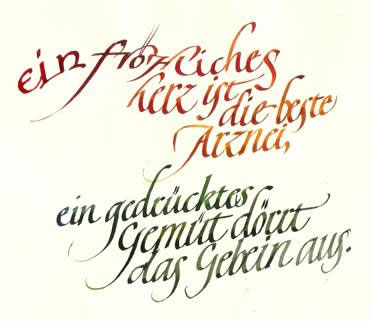 ein fröhliches
herz ist
die beste
Arznei,
ein gedrücktes
Gemüt dörrt
das Gebein aus.